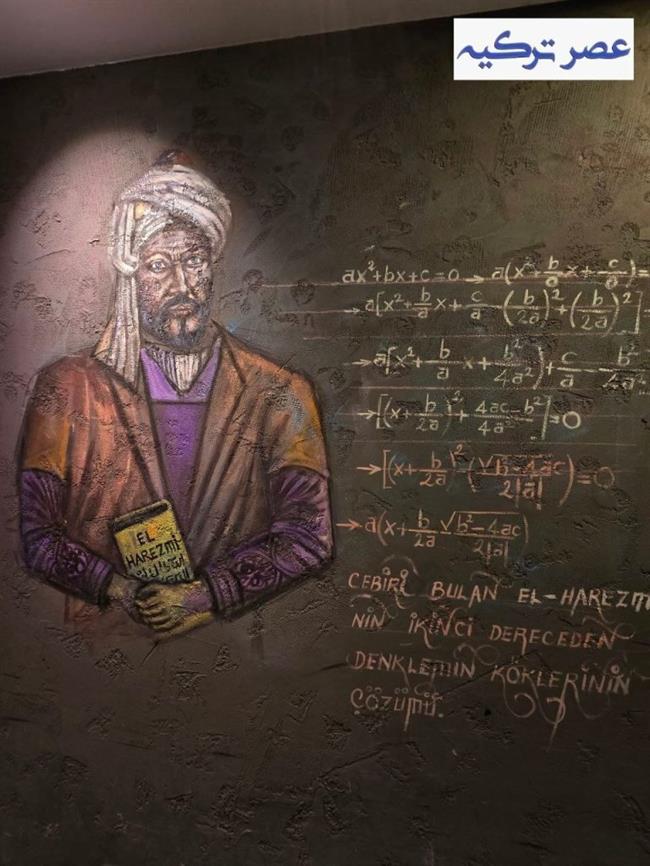 عصر تركيه
ax²+bx+c=0 → a(x²+b/a x+c/a)=
→a[x²+b/a x+c/a-(b/2a)²+(b/2a)²]
→a[x²+b/a x+b²/4a²)+c/a-b²/4a²
→[(x+b/2a)²+4ac-b²/4a²]=0
→[(x+b/2a)²-(√b-4ac/2|a|)=0
→a(x+b/2a √b²-4ac/2|a|)
EL
HAREZMİ
CEBİRİ BULAN EL-HAREZMİ
NİN İKİNCİ DERECEDEN
DENKLEMİN KÖKLERİNİN
ÇÖZÜMÜ.